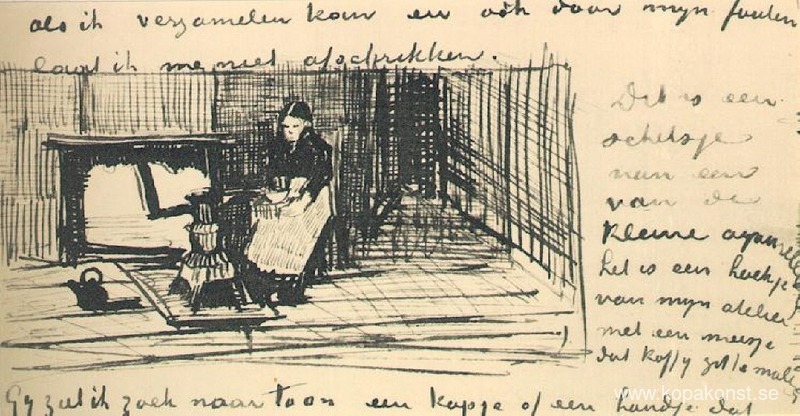 als ik verzamelen kan en ook door mijn fouten
laat ik me niet afschrikken.
Dit is een
schetsje
van een
van de
kleine aquarellen
het is een hoekje
van mijn atelier
met een meisje
dat koffy zit te malen
Gij ziet ik zoek naar toon een kopje of een handje dat
www.kopakonst.se